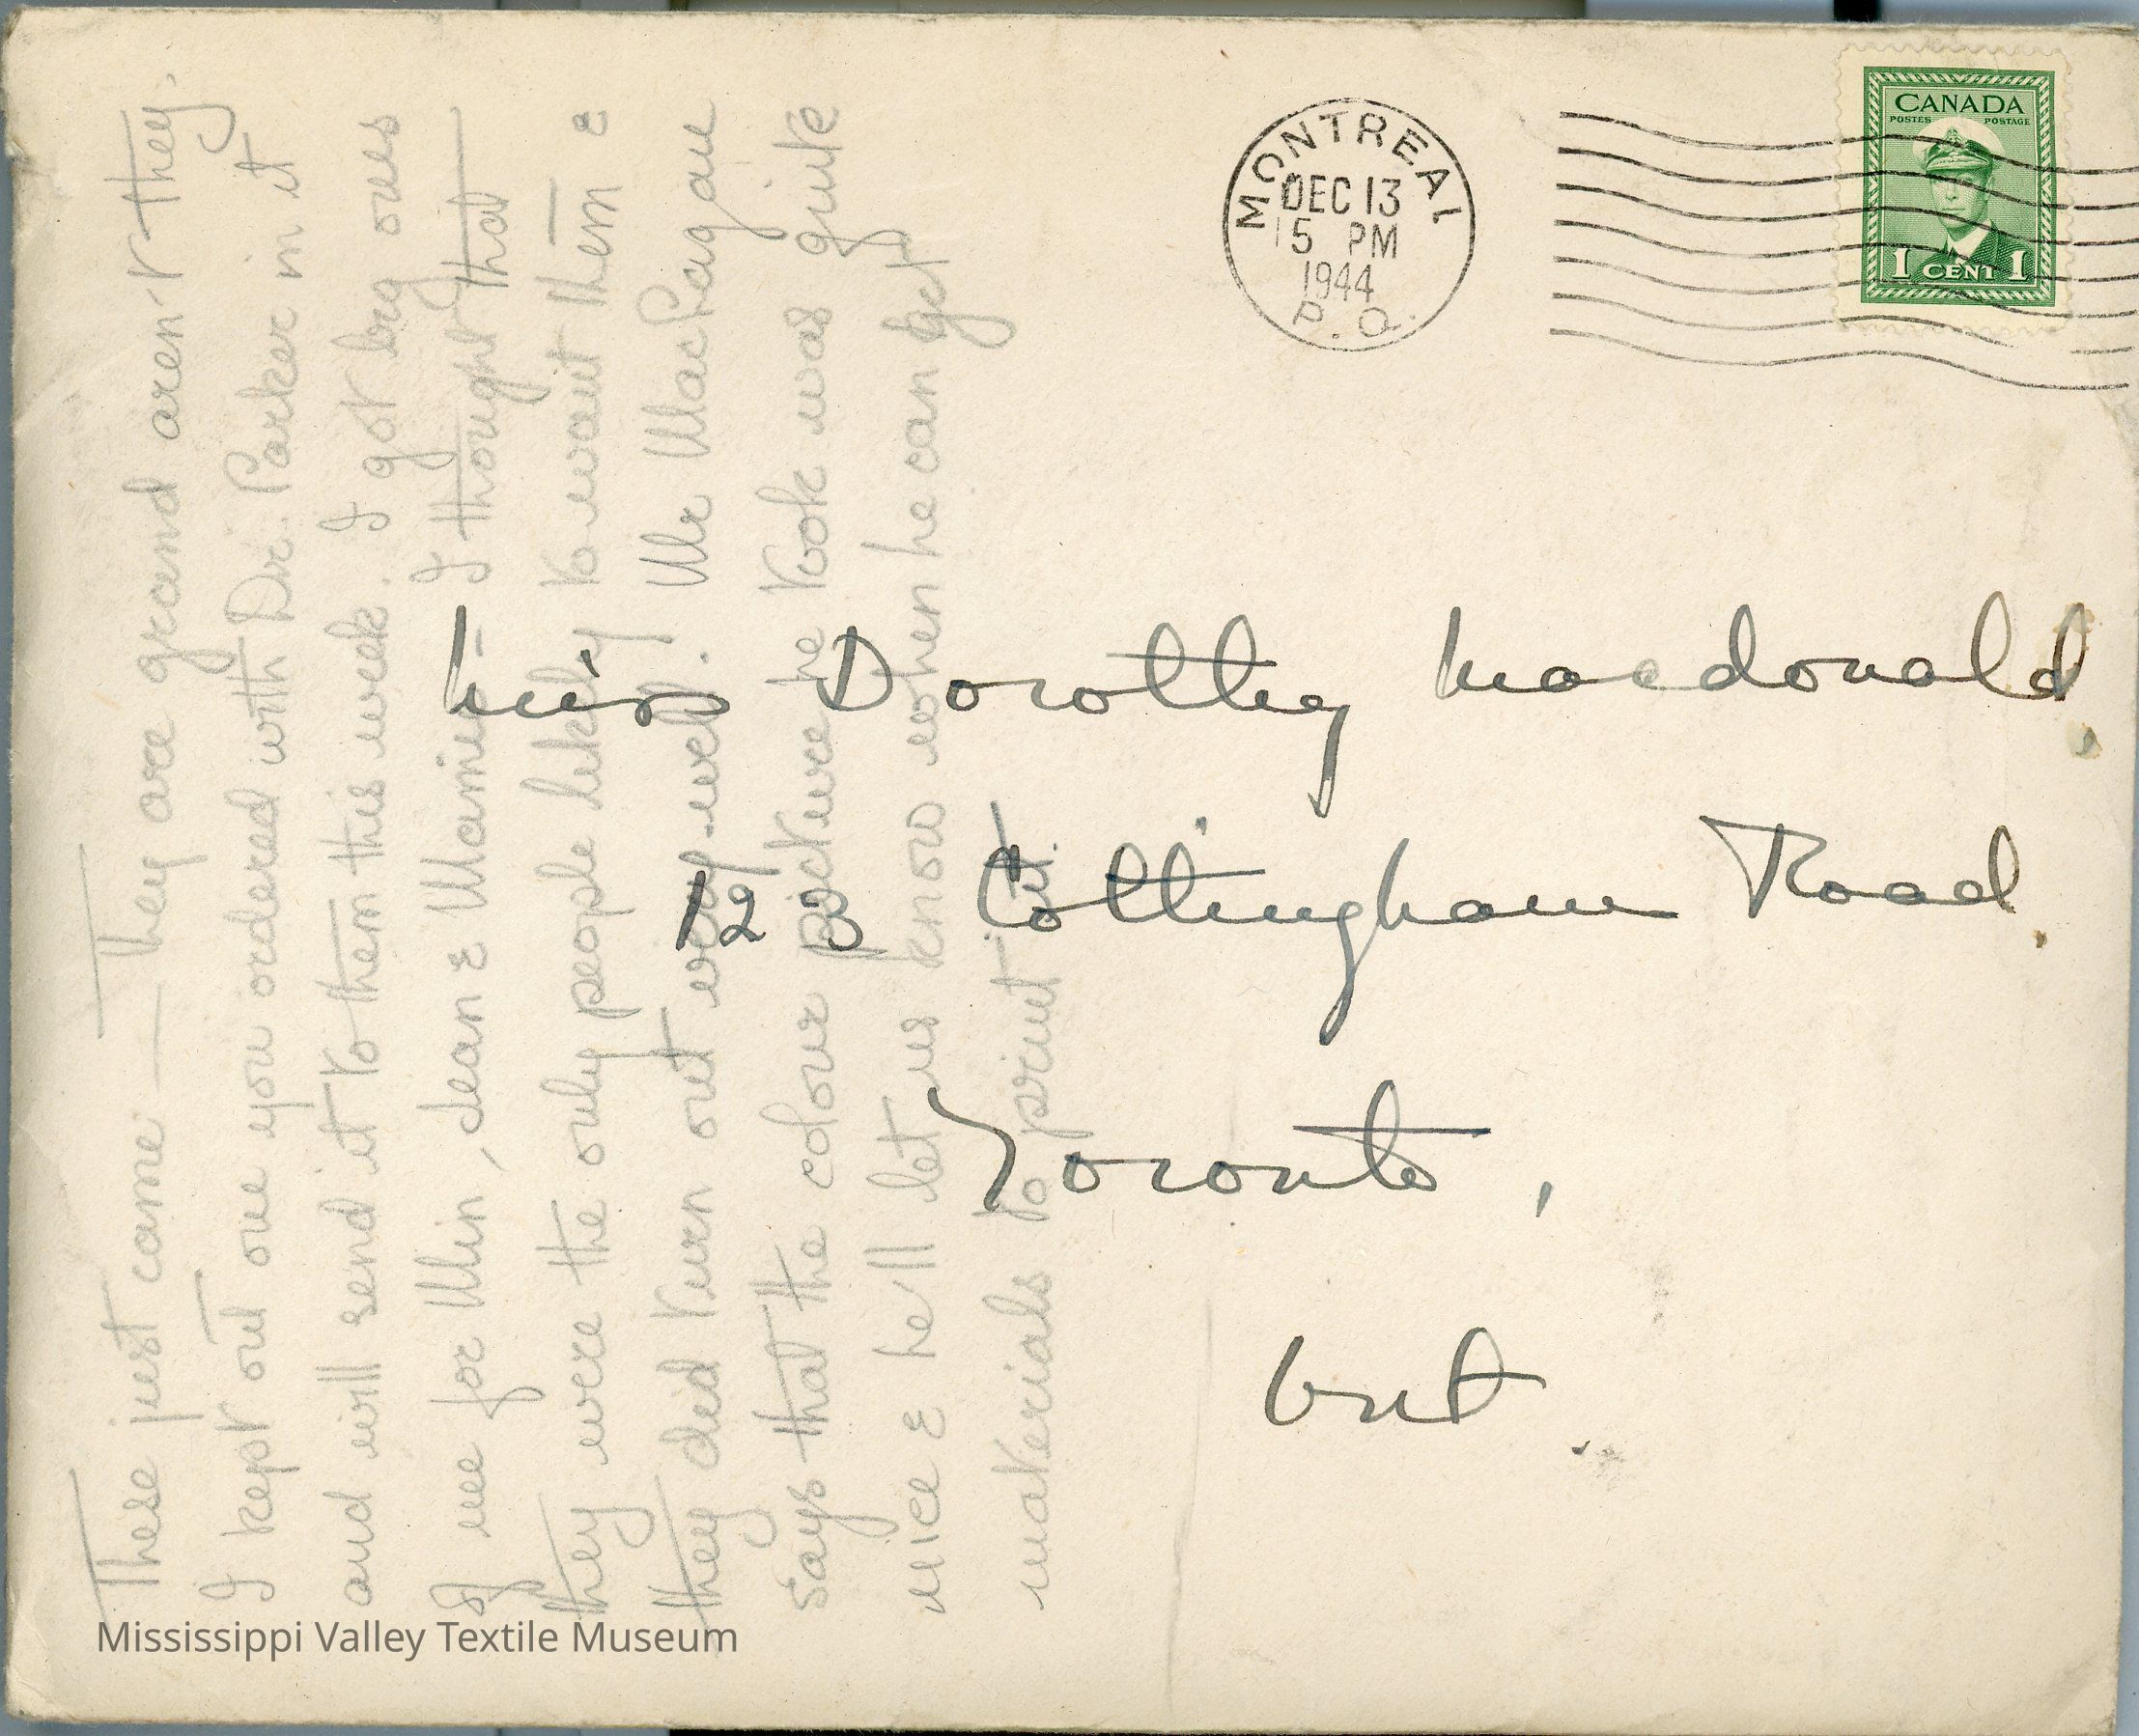 MONTREAL
DEC 13
15 PM
1944
P. Q.
CANADA
POSTES POSTAGE
1 CENT 1
Miss Dorothy Macdonald,
123 Cottingham Road,
Toronto,
Ont.
These just came — They are grand aren't they.
I kept out one you ordered with Dr. Parker in it
and will send it to them this week. I got big ones
of me for Min, Jean & Mamie - I thought that
they were the only people likely to want them &
they did turn out very well. Mr MacFagan
says that the colour picture he took was quite
nice & he'll let us know when he can get
materials to print it.
Mississippi Valley Textile Museum